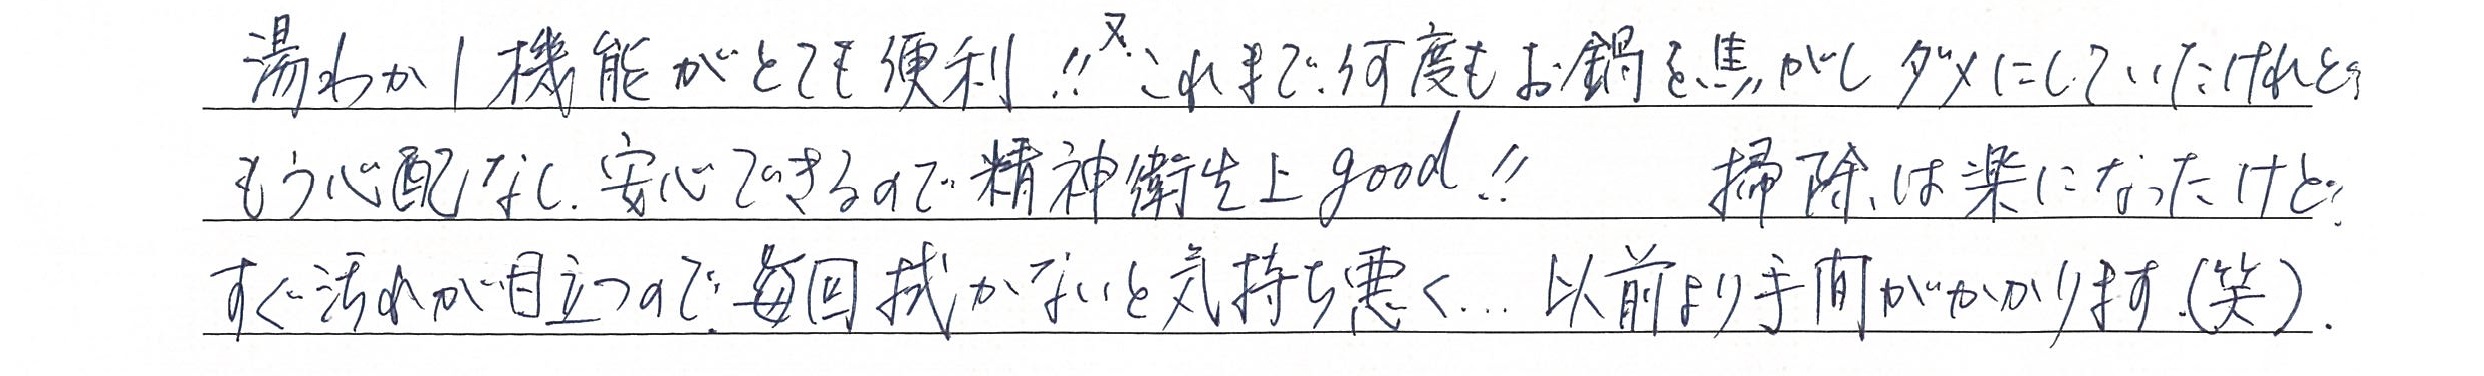 湯わかし機能がとても便利!!又、これまで何度もお鍋を焦がしダメにしていたけれど
もう心配なし。安心できるので精神衛生上good!! 掃除は楽になったけど、
すぐ汚れが目立つので毎回拭かないと気持ち悪く…以前より手間がかかります。(笑).